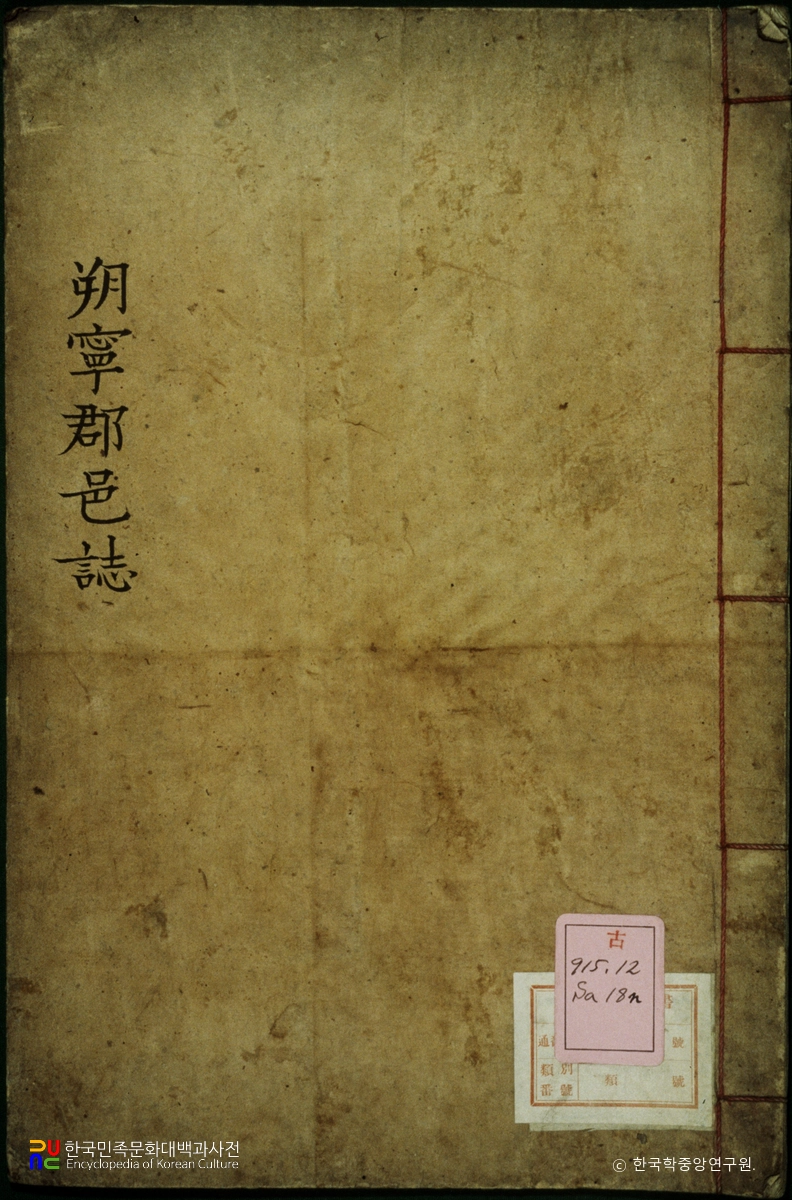 朔寧郡邑誌
古
915.12
Sa 18n
號
類
別
類
號
番
號
한국민족문화대백과사전
Encyclopedia of Korean Culture
© 한국학중앙연구원.